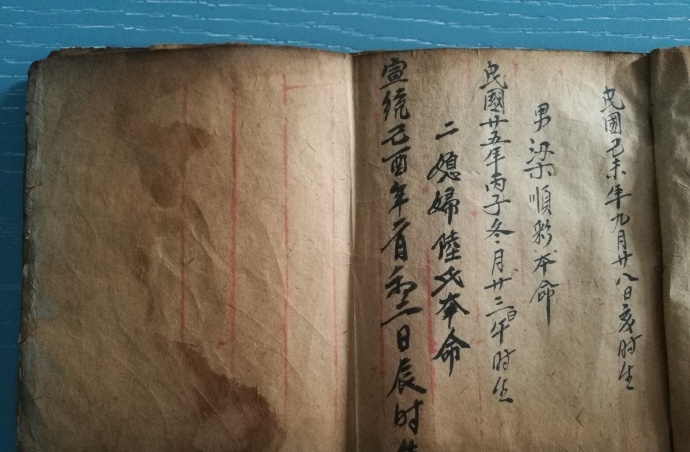 民國己未年九月廿八日亥时生
男梁順彩本命
民國廿五年丙子冬月廿三日午时生
二媳婦陸氏本命
宣統己酉年二月初二日辰时生